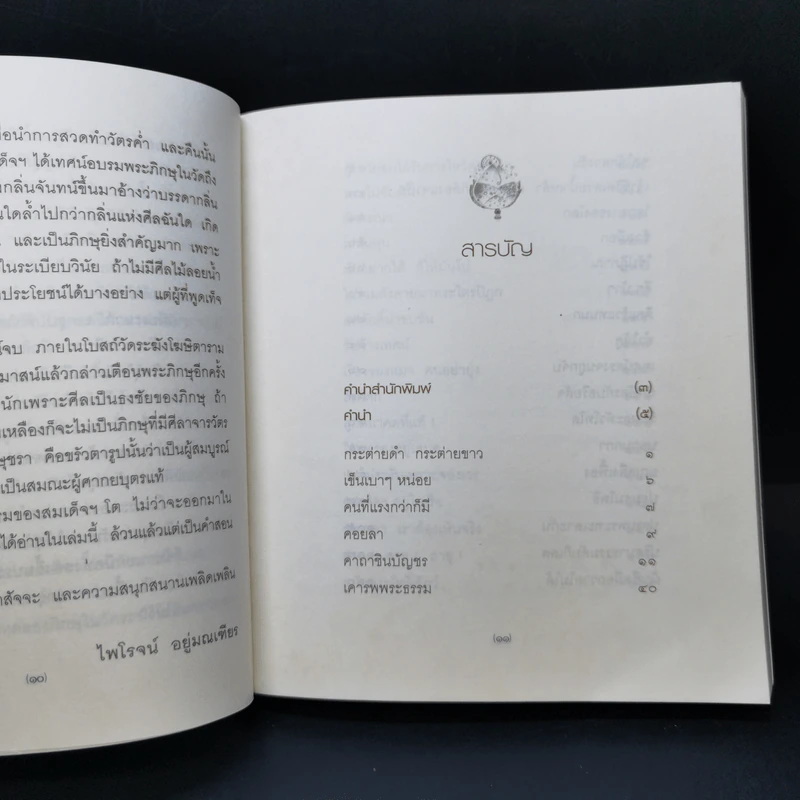 อนำการสวดทำวัตรค่ำ และคืนนั้น
ด็จฯ ได้เทศน์อบรมพระภิกษุในวัดถึง
กลิ่นจันทน์ขึ้นมาอ้างว่าบรรดากลิ่น
นใดล้ำไปกว่ากลิ่นแห่งศีลฉันใด เกิด
และเป็นภิกษุยิ่งสำคัญมาก เพราะ
ในระเบียบวินัย ถ้าไม่มีศีลไม้ลอยน้ำ
ประโยชน์ได้บางอย่าง แต่ผู้ที่พูดเท็จ
จบ ภายในโบสถ์วัดระฆังโฆษิตาราม
มาสน์แล้วกล่าวเตือนพระภิกษุอีกครั้ง
นักเพราะศีลเป็นธงชัยของภิกษุ ถ้า
เหลืองก็จะไม่เป็นภิกษุที่มีศีลาจารวัตร
ษุชรา คือขรัวตารูปนั้นว่าเป็นผู้สมบูรณ์
เป็นสมณะผู้ศากยบุตรแท้
รมของสมเด็จฯ โต ไม่ว่าจะออกมาใน
ได้อ่านในเล่มนี้ ล้วนแล้วแต่เป็นคำสอน
สัจจะ และความสนุกสนานเพลิดเพลิน
ไพโรจน์ อยู่มณเฑียร
(๑๐)
สารบัญ
คำนำสำนักพิมพ์ (๓)
คำนำ (๕)
กระต่ายดำ กระต่ายขาว ๑
เข็นเบาๆ หน่อย ๖
คนที่แรงกว่าก็มี ๗
คอยลา ๙
คาถาชินบัญชร ๑๑
เคารพพระธรรม ๔๐
(๑๑)